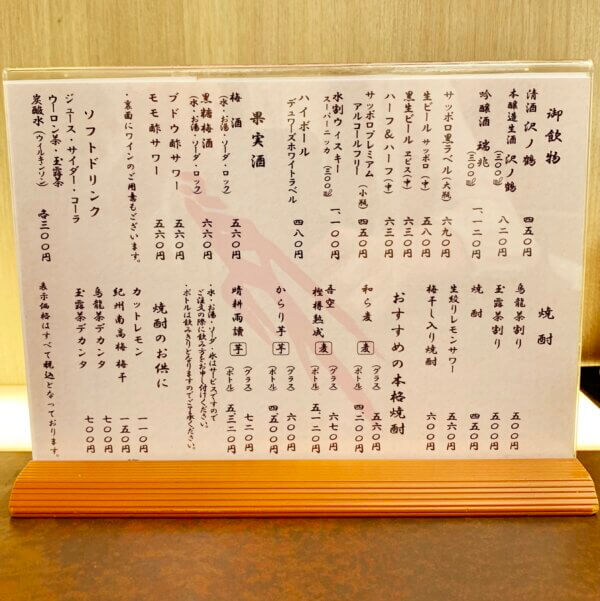 御飲物
清酒 沢ノ鶴 四五〇円
本醸造生酒 沢ノ鶴
(三〇〇㎖) 八二〇円
吟醸酒 瑞兆
(三〇〇㎖) 一、一二〇円
サッポロ黒ラベル(大瓶) 六九〇円
生ビール サッポロ(中) 五八〇円
黒生ビール ヱビス(中) 六三〇円
ハーフ&ハーフ(中) 六三〇円
サッポロプレミアム
アルコールフリー (小瓶) 四五〇円
水割ウィスキー
スーパーニッカ (三〇〇㎖) 一、一〇〇円
ハイボール
デュワーズホワイトラベル 四八〇円
果実酒
梅酒
(水・お湯・ソーダ・ロック) 五六〇円
黒糖梅酒
(水・お湯・ソーダ・ロック) 六六〇円
ブドウ酢サワー 五六〇円
モモ酢サワー 五六〇円
・裏面にワインのご用意もございます。
ソフトドリンク
ジュース・サイダー・コーラ
ウーロン茶・玉露茶
炭酸水(ウイルキンソン) 各三〇〇円
焼酎
烏龍茶割り 五〇〇円
玉露茶割り 五〇〇円
焼酎 四五〇円
生絞りレモンサワー 五六〇円
梅干し入り焼酎 六〇〇円
おすすめの本格焼酎
和ら麦 麦 (グラス) 五六〇円
(ボトル) 四、二〇〇円
吾空
樫樽熟成 麦 (グラス) 六七〇円
(ボトル) 五、一二〇円
からり芋 芋 (グラス) 六〇〇円
(ボトル) 四、五〇〇円
晴耕雨讀 芋 (グラス) 七二〇円
(ボトル) 五、三二〇円
・水・お湯・ソーダ・氷はサービスですので
ご注文の際に飲み方をお申し付けください。
・ボトルは飲みきりとなりますのでご了承ください。
焼酎のお供に
カットレモン 一一〇円
紀州南高梅 梅干 一五〇円
烏龍茶デカンタ 七〇〇円
玉露茶デカンタ 七〇〇円
表示価格はすべて税込となっております。